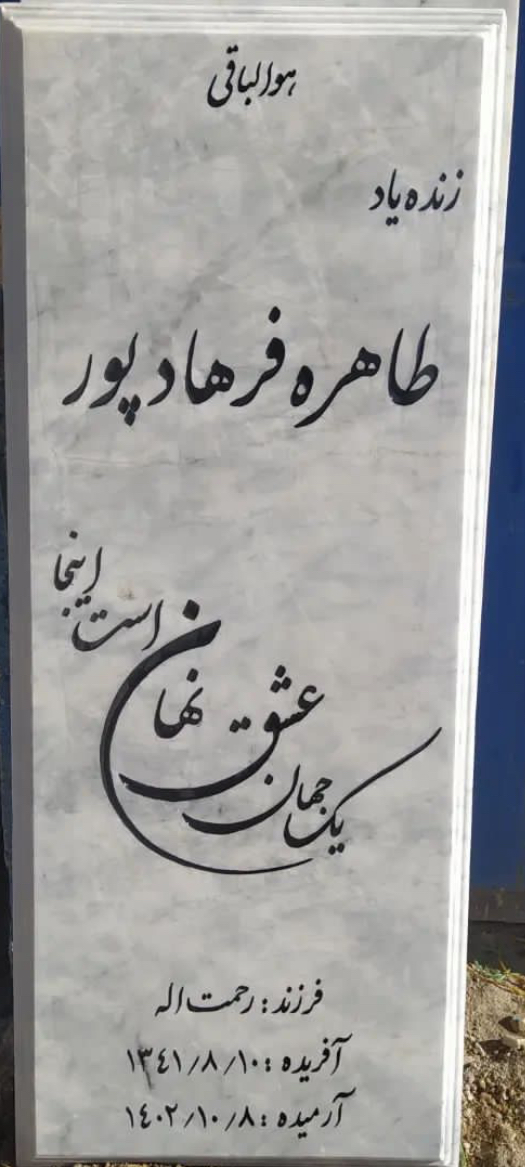 هوالباقی
زنده یاد
طاهره فرهادپور
یک جهان عشق نهان است اینجا
فرزند : رحمت اله
آفریده : ۱۳۴۱/۸/۱۰
آرمیده : ۱۴۰۲/۱۰/۸